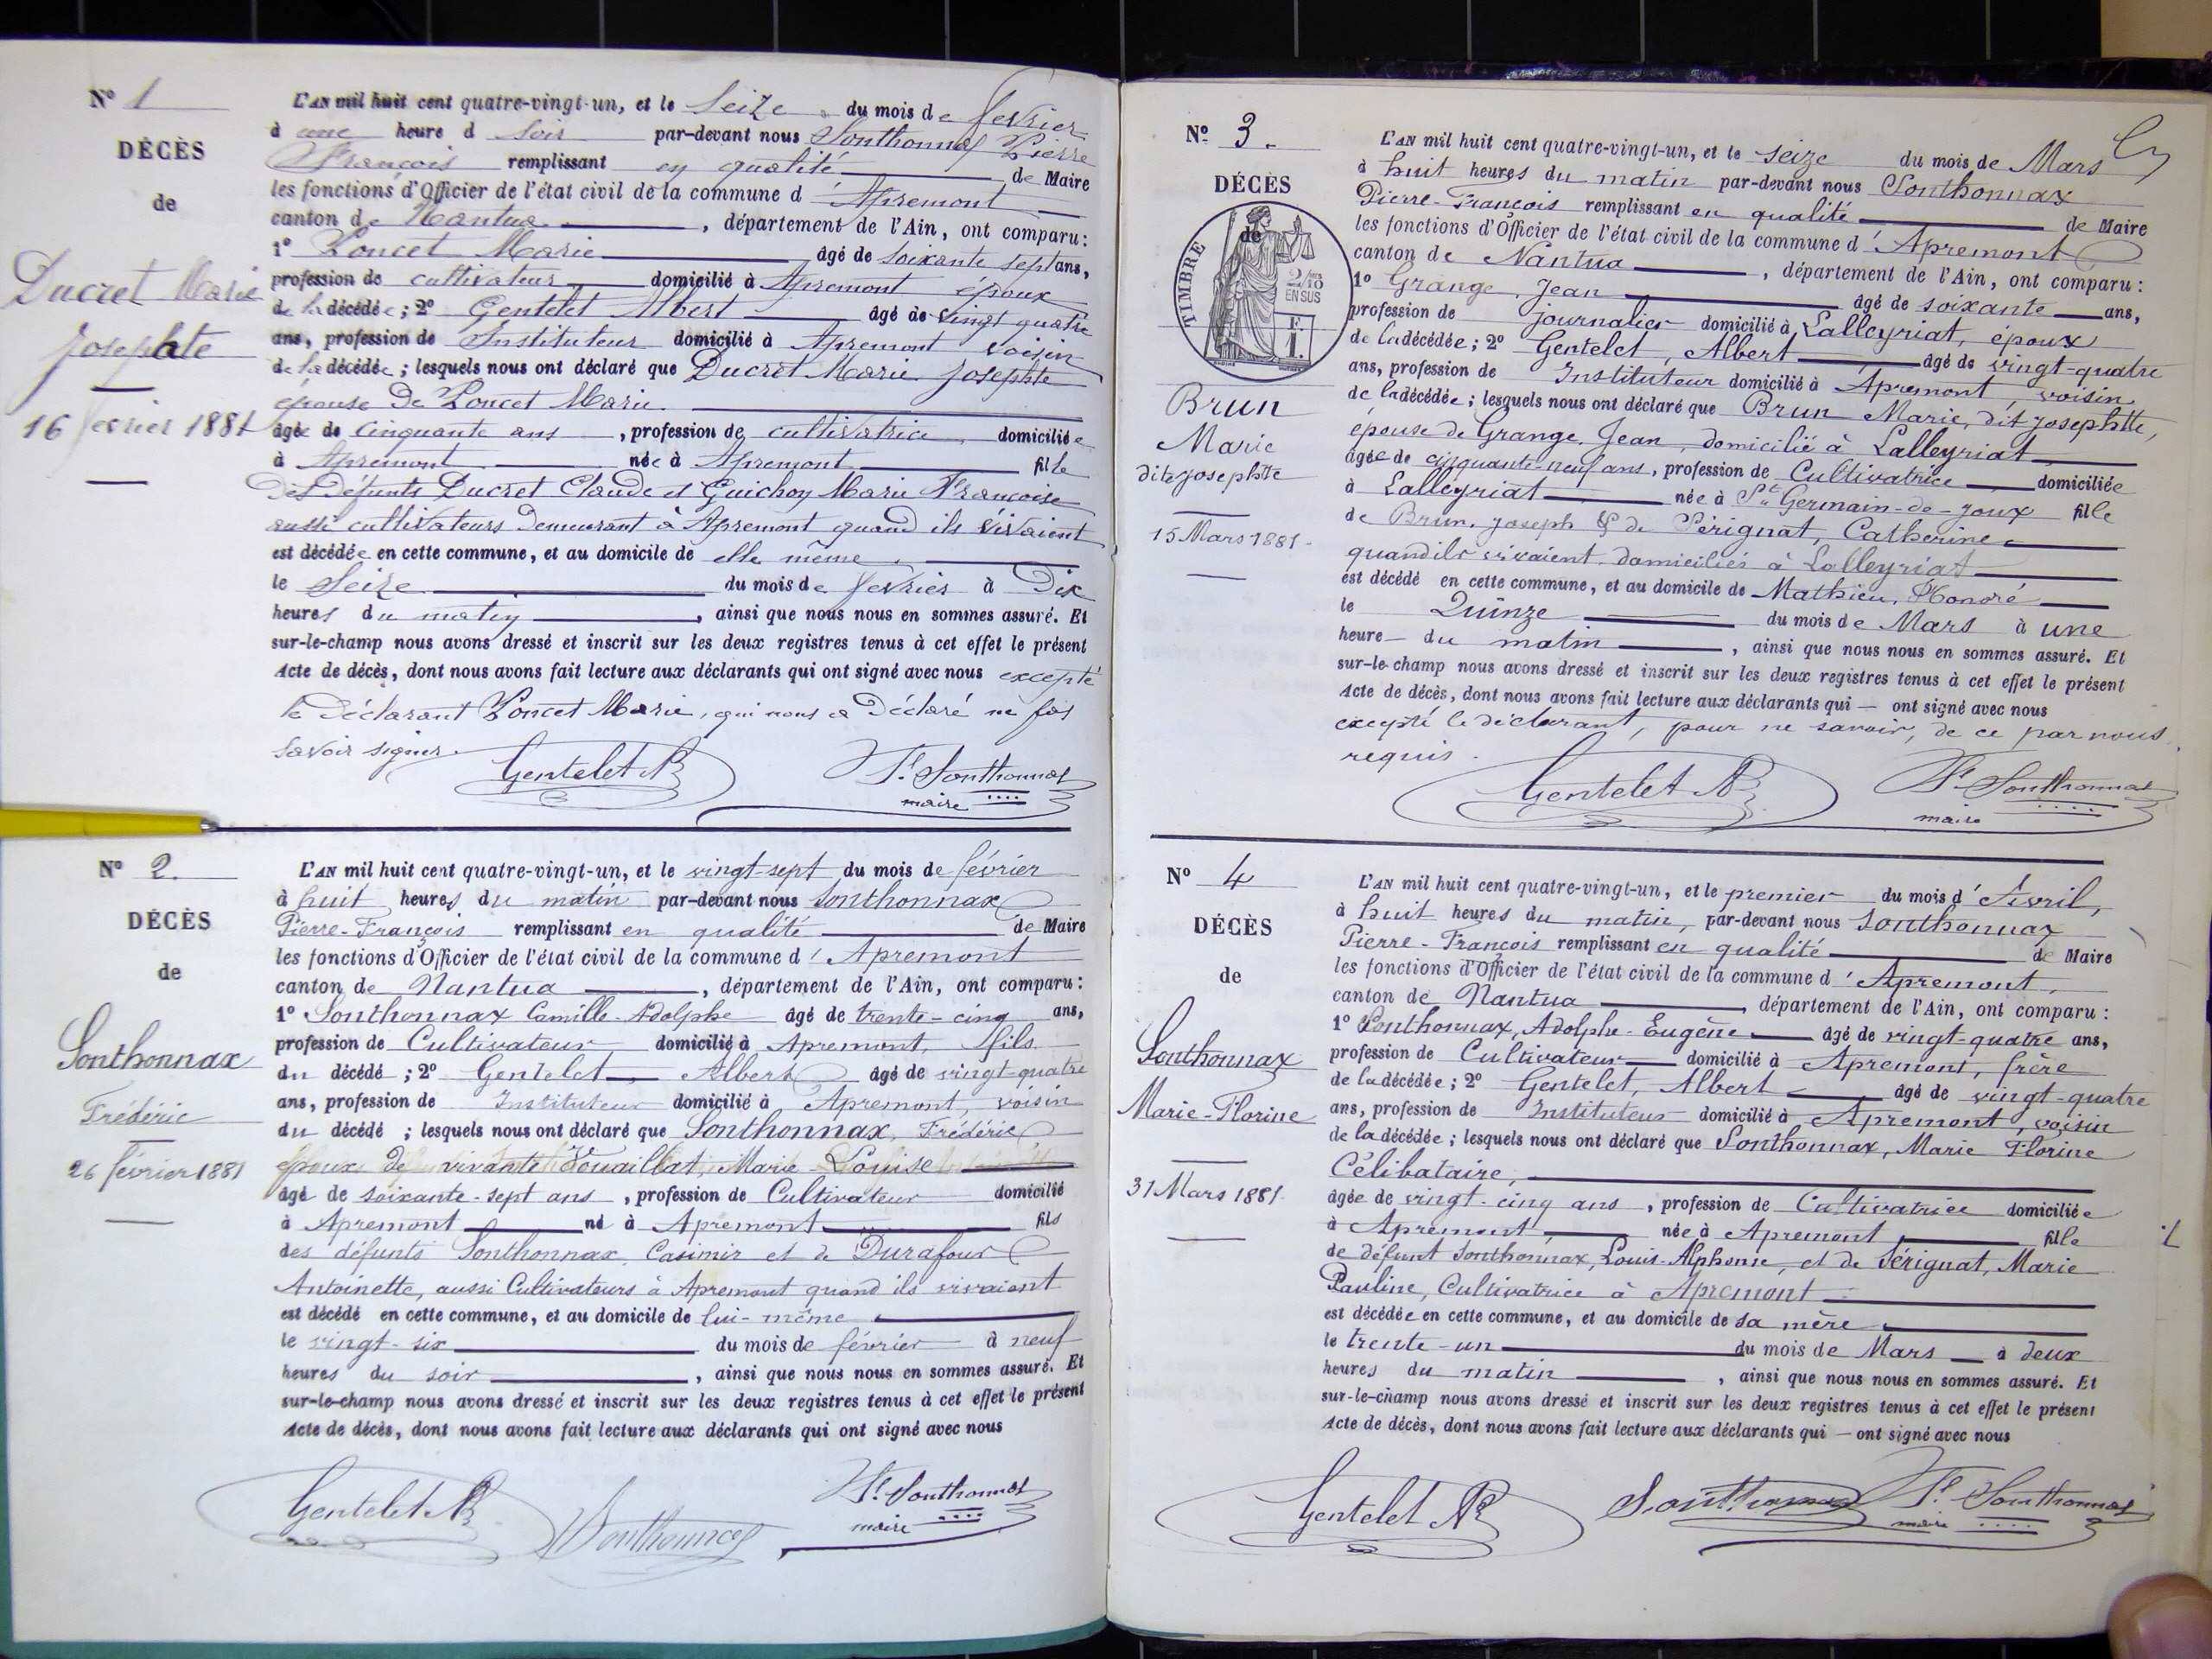 N° 1
DÉCÈS
de
Ducret Marie
Josephte
16 fevrier 1881
L'AN mil huit cent quatre-vingt-un, et le Seize du mois de fevrier
à une heure d soir par-devant nous Sonthonnax Pierre
François remplissant en qualité de Maire
les fonctions d'Officier de l'état civil de la commune d'Apremont
canton de Nantua, département de l'Ain, ont comparu:
1° Poncet Marie âgé de soixante sept ans,
profession de cultivateur domicilié à Apremont époux
de la décédée; 2° Gentelet Albert âgé de vingt quatre
ans, profession de Instituteur domicilié à Apremont voisin
de la décédée; lesquels nous ont déclaré que Ducret Marie Josephte
épouse De Poncet Marie
âgée de Cinquante ans, profession de cultivatrice domiciliée
à Apremont née à Apremont fille
des Défunts Ducret Claude et Guichon Marie Françoise
aussi cultivateurs Demeurant à Apremont quand ils vivaient
est décédée en cette commune, et au domicile de elle même
le Seize du mois de fevrier à Dix
heures du matin, ainsi que nous nous en sommes assuré. Et
sur-le-champ nous avons dressé et inscrit sur les deux registres tenus à cet effet le présent
Acte de décès, dont nous avons fait lecture aux déclarants qui ont signé avec nous excepté
le Déclarant Poncet Marie, qui nous a Déclaré ne pas
savoir signer.
Gentelet A
Sonthonnax
maire
N° 2.
DÉCÈS
de
Sonthonnax
Frédéric
26 février 1881
L'AN mil huit cent quatre-vingt-un, et le vingt-sept du mois de février
à huit heures du matin par-devant nous Sonthonnax
Pierre-François remplissant en qualité de Maire
les fonctions d'Officier de l'état civil de la commune d'Apremont
canton de Nantua, département de l'Ain, ont comparu:
1° Sonthonnax Camille-Adolphe âgé de trente-cinq ans,
profession de Cultivateur domicilié à Apremont, fils
du décédé; 2° Gentelet Albert âgé de vingt-quatre
ans, profession de Instituteur domicilié à Apremont, voisin
du décédé; lesquels nous ont déclaré que Sonthonnax, Frédéric
époux de vivante Vouaillat, Marie-Louise
âgé de soixante-sept ans, profession de Cultivateur domicilié
à Apremont né à Apremont fils
des défunts Sonthonnax, Casimir et de Durafour
Antoinette, aussi Cultivateurs à Apremont quand ils vivaient
est décédé en cette commune, et au domicile de lui-même
le vingt-six du mois de février à neuf
heures du soir, ainsi que nous nous en sommes assuré. Et
sur-le-champ nous avons dressé et inscrit sur les deux registres tenus à cet effet le présent
Acte de décès, dont nous avons fait lecture aux déclarants qui ont signé avec nous
Gentelet A
Sonthonnax
Sonthonnax
maire
N° 3.
DÉCÈS
de
TIMBRE
2/10
EN SUS
Brun
Marie
dite Josephtte
15 Mars 1881.
L'AN mil huit cent quatre-vingt-un, et le seize du mois de Mars
à huit heures du matin par-devant nous Sonthonnax
Pierre-François remplissant en qualité de Maire
les fonctions d'Officier de l'état civil de la commune d'Apremont
canton de Nantua, département de l'Ain, ont comparu:
1° Grange, Jean âgé de soixante ans,
profession de journalier domicilié à Lalleyriat, époux
de la décédée; 2° Gentelet, Albert âgé de vingt-quatre
ans, profession de Instituteur domicilié à Apremont, voisin
de la décédée; lesquels nous ont déclaré que Brun Marie, dit Josephtte,
épouse de Grange, Jean, domicilié à Lalleyriat
âgée de cinquante-neuf ans, profession de Cultivatrice domiciliée
à Lalleyriat née à St Germain-de-Joux fille
de Brun, Joseph & de Sérignat, Catherine
quand ils vivaient domiciliés à Lalleyriat
est décédé en cette commune, et au domicile de Mathieu, Honoré
le Quinze du mois de Mars à une
heure du matin, ainsi que nous nous en sommes assuré. Et
sur-le champ nous avons dressé et inscrit sur les deux registres tenus à cet effet le présent
Acte de décès, dont nous avons fait lecture aux déclarants qui — ont signé avec nous
excepté le déclarant, pour ne savoir, de ce par nous
requis.
Gentelet A
Sonthonnax
maire
N° 4
DÉCÈS
de
Sonthonnax
Marie-Florine
31 Mars 1881.
L'AN mil huit cent quatre-vingt-un, et le premier du mois d'Avril,
à huit heures du matin, par-devant nous Sonthonnax
Pierre-François remplissant en qualité de Maire
les fonctions d'Officier de l'état civil de la commune d'Apremont,
canton de Nantua département de l'Ain, ont comparu:
1° Sonthonnax, Adolphe-Eugène âgé de vingt-quatre ans,
profession de Cultivateur domicilié à Apremont, frère
de la décédée; 2° Gentelet, Albert âgé de vingt-quatre
ans, profession de Instituteur domicilié à Apremont, voisin
de la décédée; lesquels nous ont déclaré que Sonthonnax, Marie Florine
Célibataire,
âgée de vingt-cinq ans, profession de Cultivatrice domiciliée
à Apremont, née à Apremont fille
de défunt Sonthonnax, Louis-Alphonse, et de Sérignat, Marie
Pauline, Cultivatrice à Apremont
est décédée en cette commune, et au domicile de sa mère
le trente-un du mois de Mars à deux
heures du matin, ainsi que nous nous en sommes assuré. Et
sur-le-champ nous avons dressé et inscrit sur les deux registres tenus à cet effet le présent
Acte de décès, dont nous avons fait lecture aux déclarants qui — ont signé avec nous
Gentelet A
Sonthonnax
Sonthonnax
maire